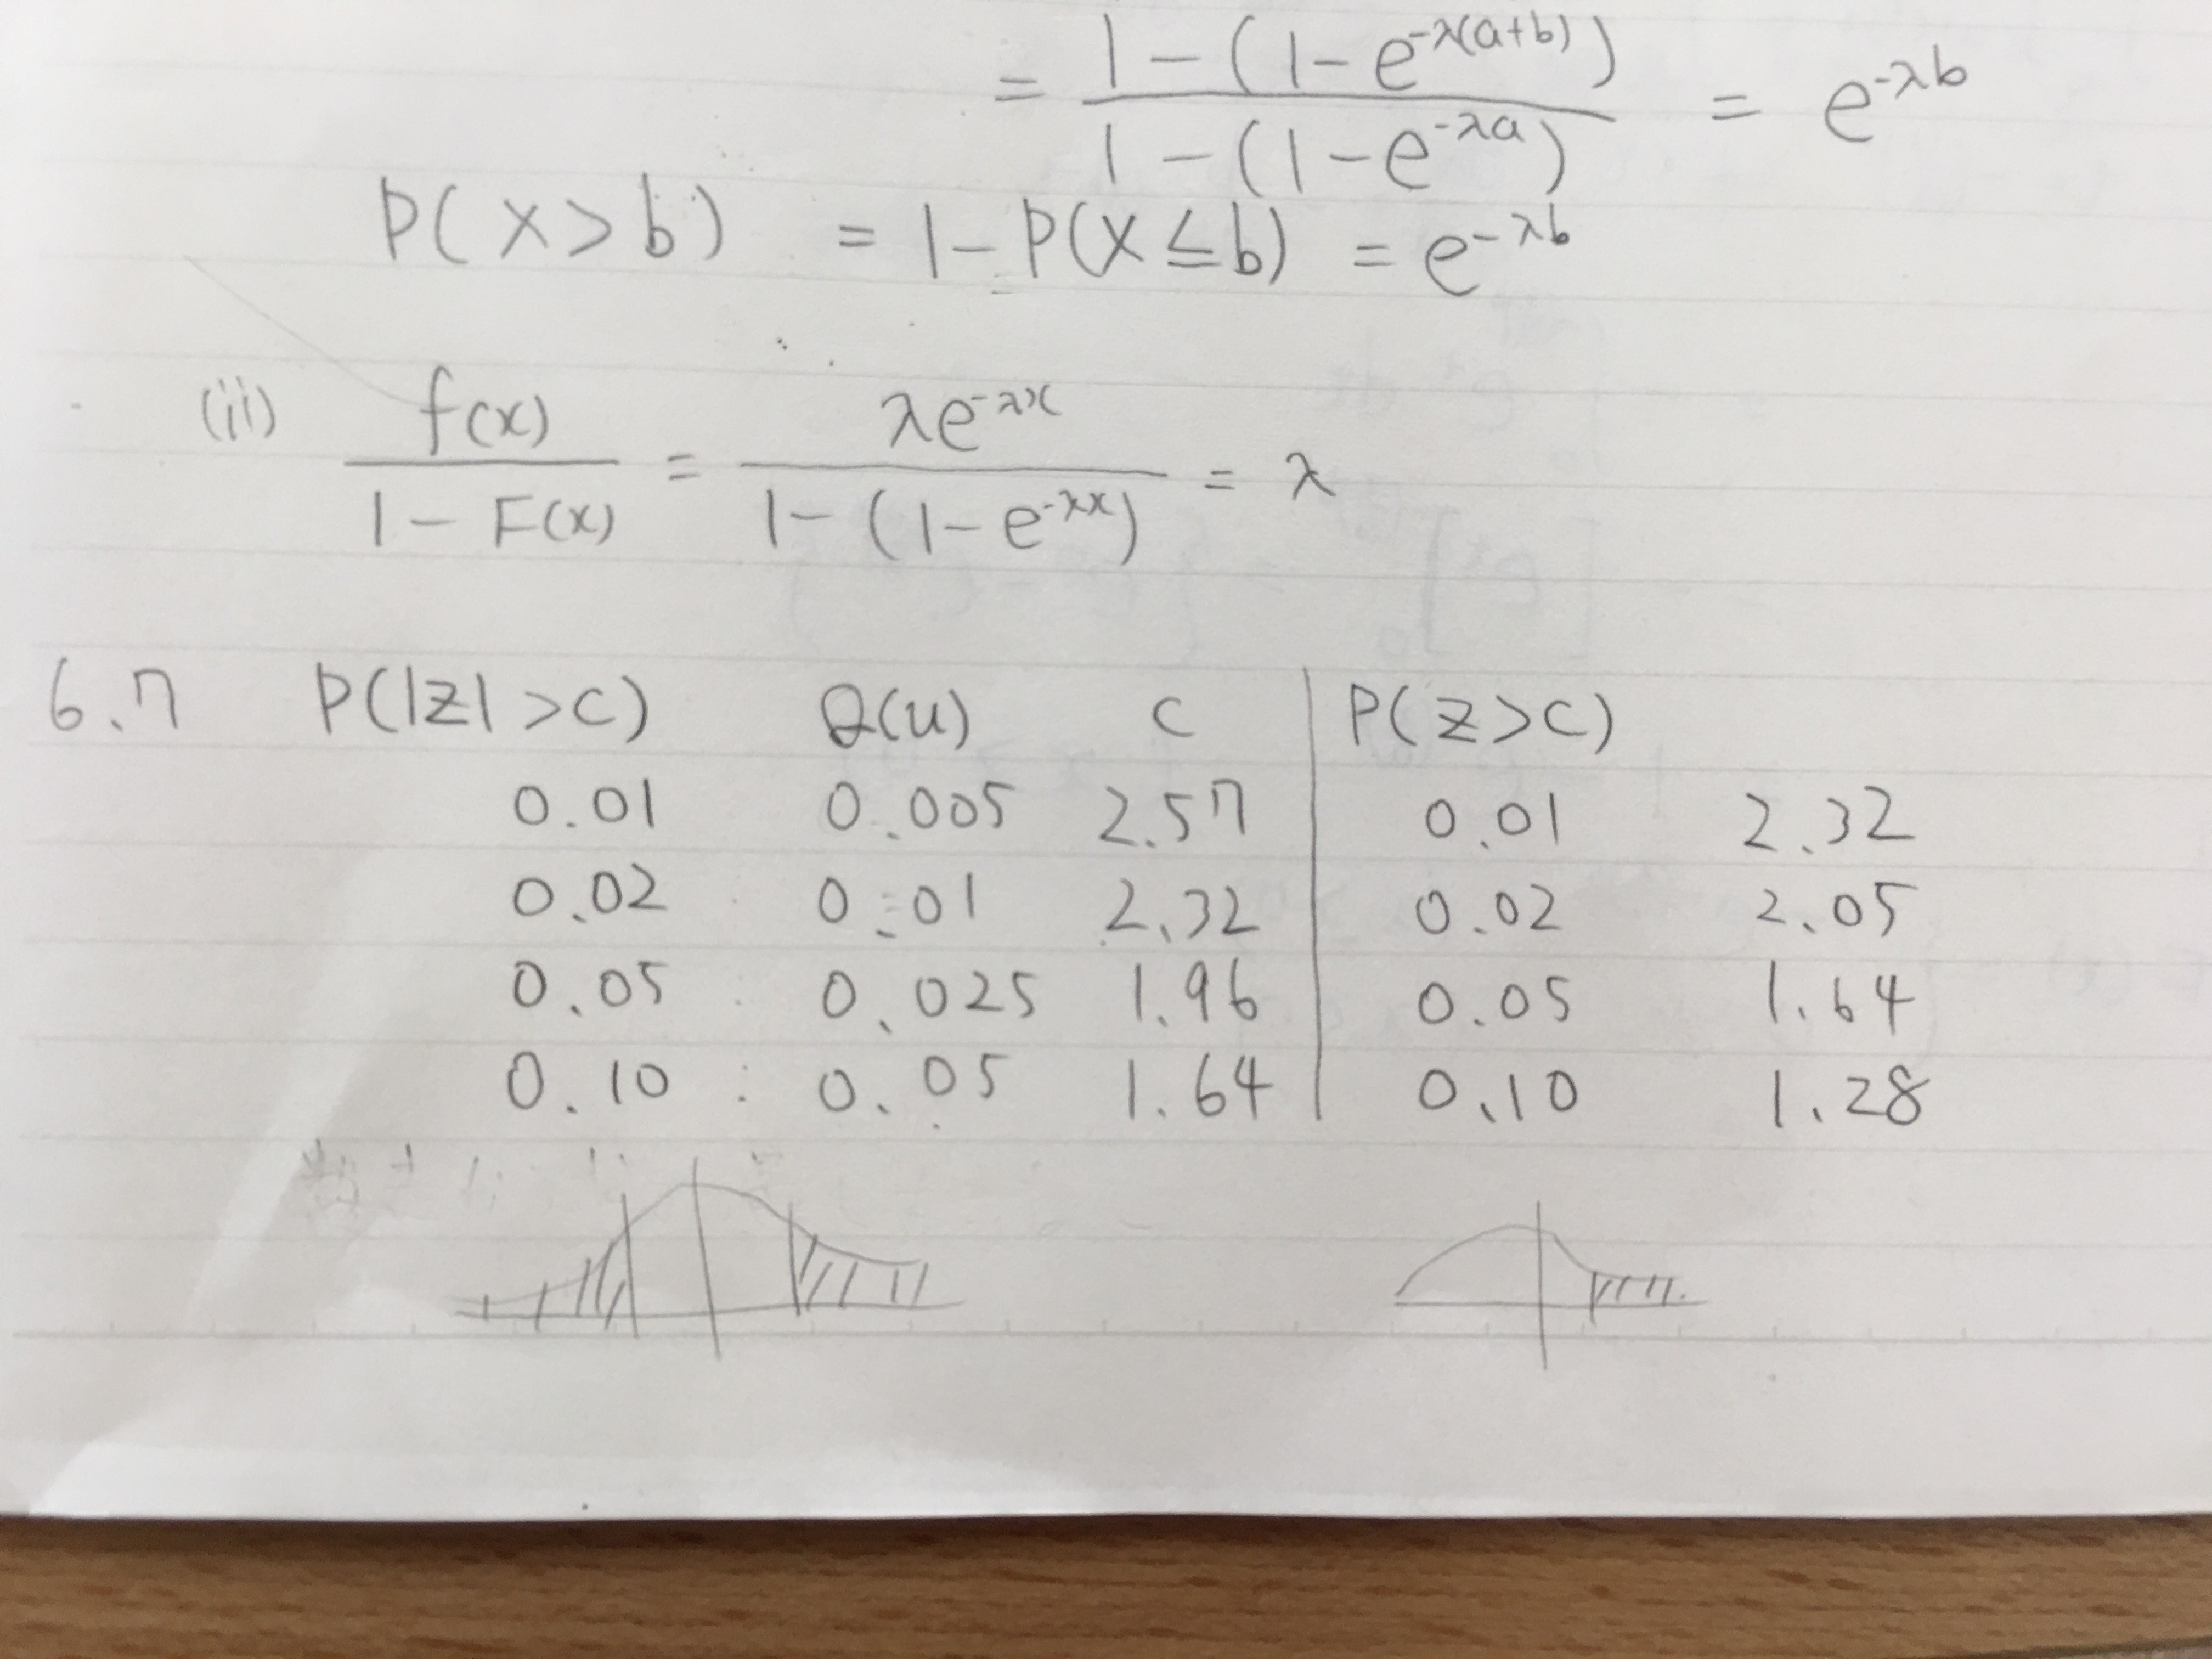 = 1-(1-e^{-λ(a+b)}) / 1-(1-e^{-λa}) = e^{-λb}
P(X>b) = 1-P(X≤b) = e^{-λb}
(ii) f(x) / 1-F(x) = λe^{-λx} / 1-(1-e^{-λx}) = λ
6.7 P(|Z|>c) Q(u) c P(Z>c)
0.01 0.005 2.57 0.01 2.32
0.02 0.01 2.32 0.02 2.05
0.05 0.025 1.96 0.05 1.64
0.10 0.05 1.64 0.10 1.28